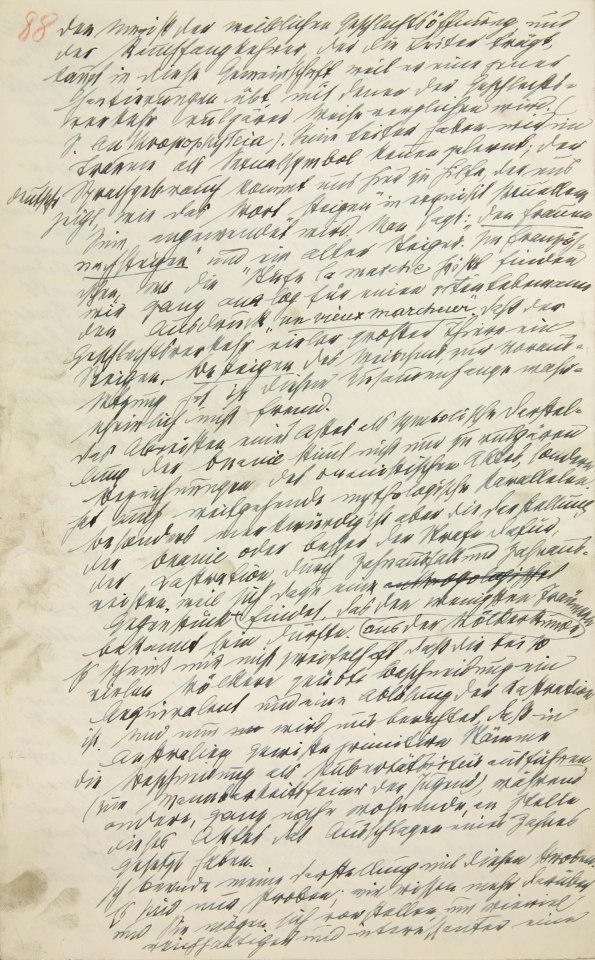 88
den Umriß der weiblichen Geschlechtsöffnung und
der Rauchfangkehrer, der die Leiter trägt,
kommt in diese Gemeinschaft, weil er eine jener
Hantierungen übt, mit denen der Geschlechts-
verkehr vulgärer Weise verglichen wird. (
S. Anthropophyteia). Seine Leiter haben wir im
Traume als Sexualsymbol kennen gelernt; der
deutsche Sprachgebrauch kommt uns hier zu Hilfe, der uns
zeigt, wie das Wort "steigen" in exquisit sexuellem
Sinn angewendet wird. Man sagt: "den Frauen
nachsteigen" und ein alter Steiger. Im Französi-
schen, wo die Stufe la marche heißt, finden
wir ganz analog für einen alten Lebemann
den Ausdruck "un vieux marcheur". Daß der
Geschlechtsverkehr vieler großer Tiere ein
Steigen, Besteigen des Weibchens zur Voraus-
setzung hat, ist diesem Zusammenhange wahr-
scheinlich nicht fremd.
Das Abreißen eines Astes als symbolische Darstel-
lung der Onanie stimmt nicht nur zu vulgären
Bezeichnungen des onanistischen Aktes, sondern
hat auch weitgehende mythologische Parallelen.
Besonders merkwürdig ist aber die Darstellung
der Onanie oder besser der Strafe dafür,
der Kastration, durch Zahnausfall und Zahnaus-
reißen, weil sich dazu ein
Gegenstück aus der Völkerkunde findet, das den wenigsten Träumern
bekannt sein dürfte.
Es scheint mir nicht zweifelhaft, daß die bei so
vielen Völkern geübte Beschneidung ein
Aequivalent und eine Ablösung der Kastration
ist. Und nun wird uns berichtet, daß in
Australien gewisse primitive Stämme
die Beschneidung als Pubertätsritus ausführen
(zur Mannbarkeitsfeier der Jugend), während
andere, ganz nahe wohnende, an Stelle
dieses Aktes das Ausschlagen eines Zahnes
gesetzt haben.
Ich beende meine Darstellung mit diesen Proben.
Es sind nur Proben; wir wissen mehr darüber
und Sie mögen sich vorstellen, um wieviel
reichhaltiger und interessanter eine